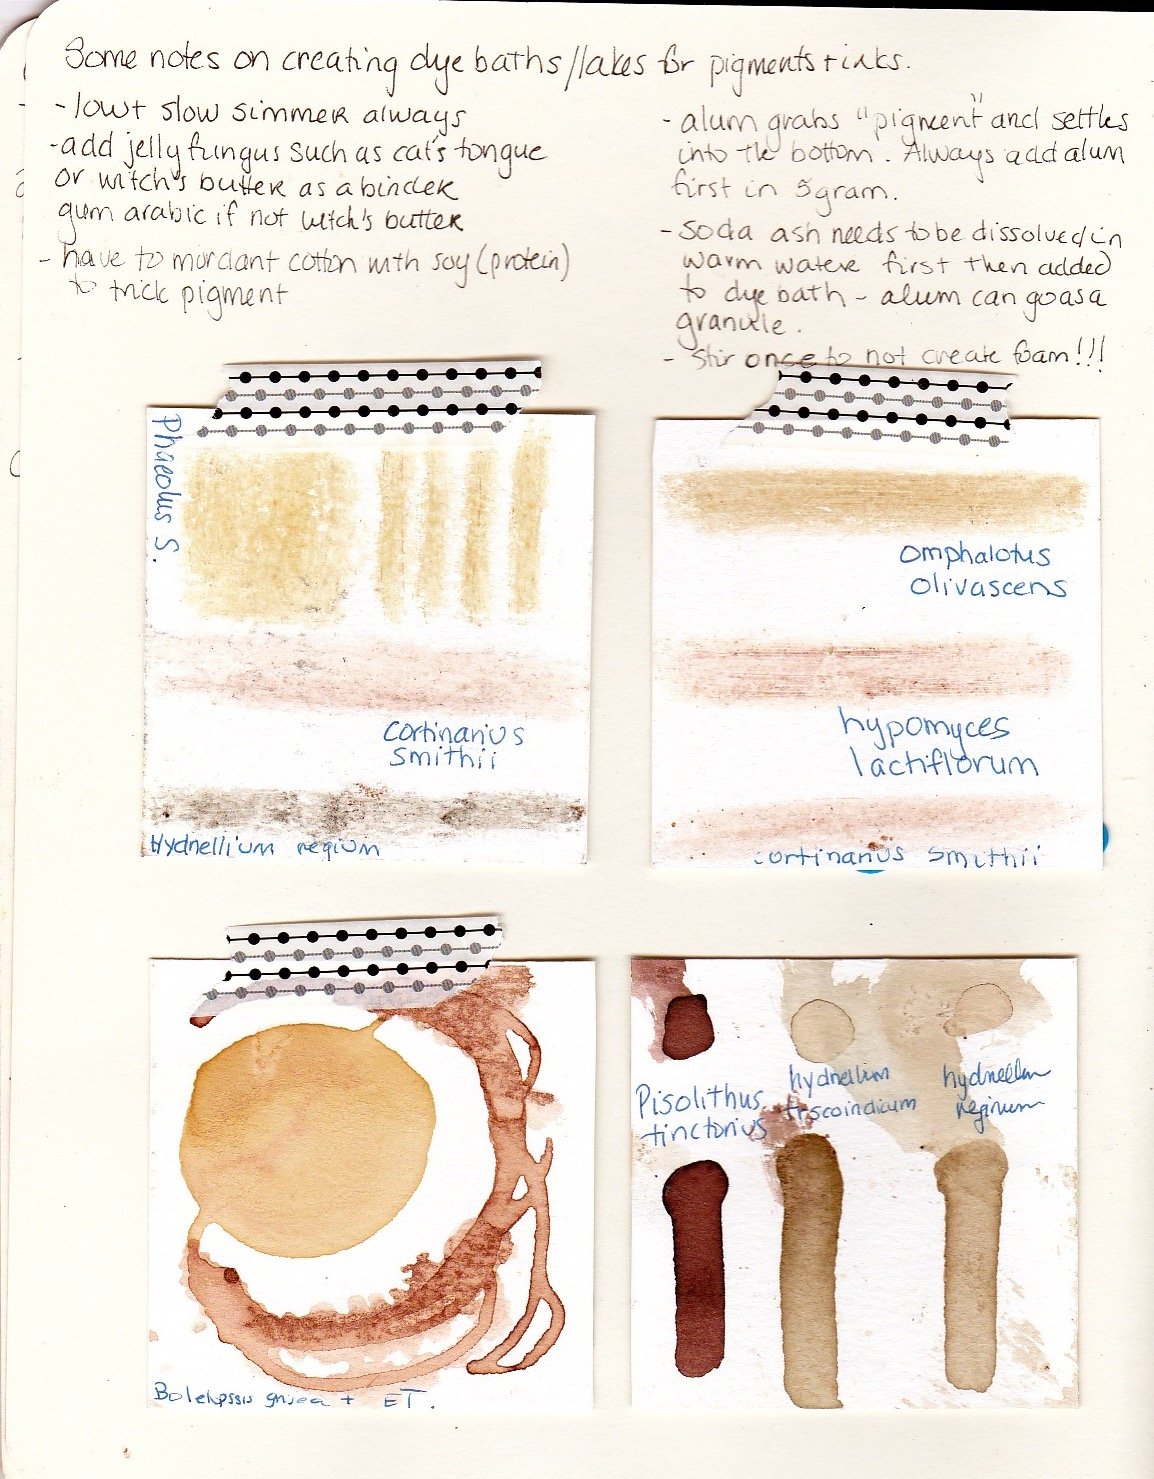 Some notes on creating dye baths//lakes for pigments + inks.
- low + slow simmer always
- add jelly fungus such as cat's tongue
or witch's butter as a binder
gum arabic if not witch's butter
- have to mordant cotton with soy (protein)
to trick pigment
- alum grabs "pigment" and settles
into the bottom. Always add alum
first in 5 gram.
- Soda ash needs to be dissolved in
warm water first then added
to dye bath - alum can go as a
granule.
- Stir once to not create foam!!!
Phaeolus S.
Cortinarius
Smithii
Hydnellium regium
Omphalotus
Olivascens
hypomyces
lactiflorum
cortinarius smithii
Boletopssis grisea + ET.
Pisolithus
tinctorius
hydnellum
hydnellum